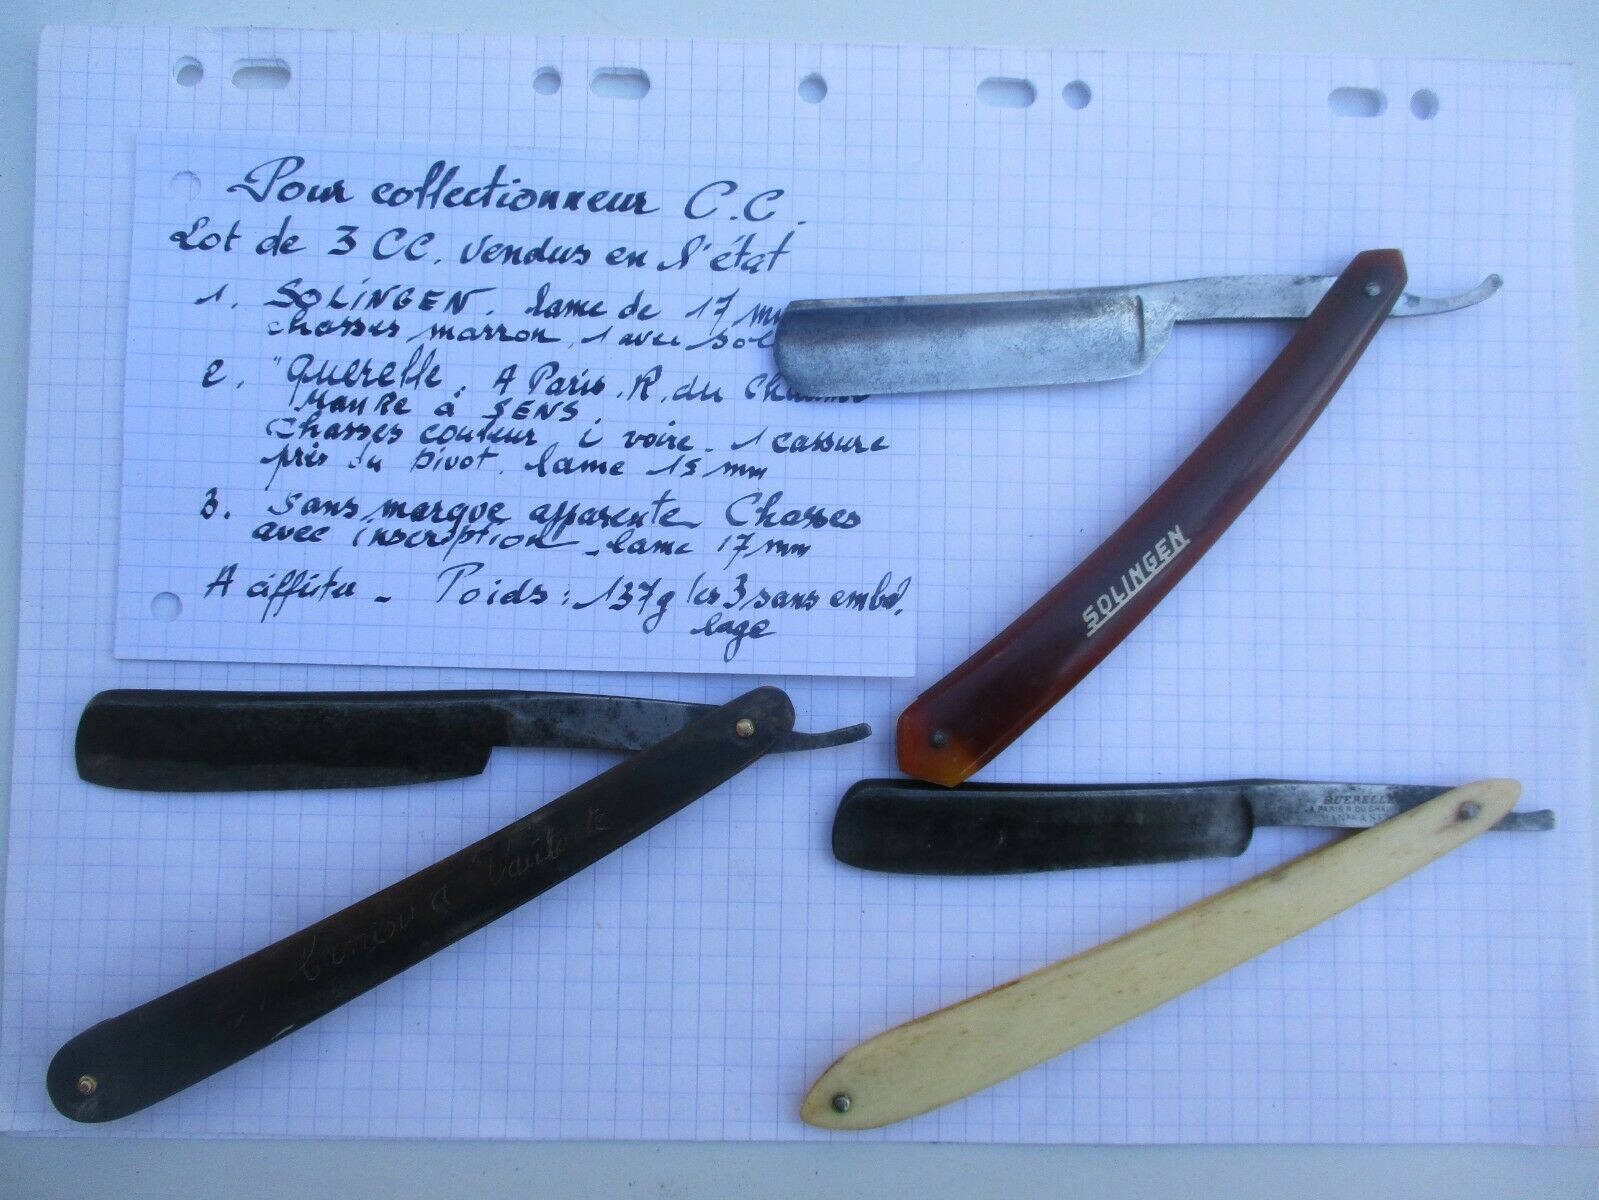 Pour collectionneur C.C.
Lot de 3 CC. vendus en l'état
1. SOLINGEN. lame de 17 mm
chasses marron, 1 avec Sol
2. "Querelle. A Paris. R. du
à SENS.
chasses couleur i voire. 1 cassure
près du pivot. lame 15 mm
3. Sans marque apparente Chasses
avec inscription - lame 17 mm
A affuter - Poids : 137g les 3 sans embal.
lage
SOLINGEN
QUERELLE
A PARIS R. DU
A